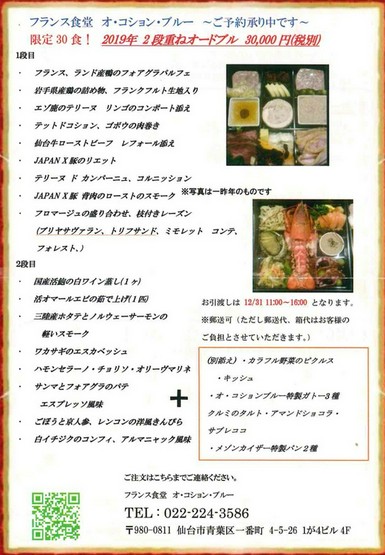 フランス食堂 オ・コション・ブルー ～ご予約承り中です～
限定30食！ 2019年 2段重ねオードブル 30,000円(税別)
1段目
・ フランス、ランド産鴨のフォアグラパルフェ
・ 岩手県産鶏の詰め物、フランクフルト生地入り
・ エゾ鹿のテリーヌ リンゴのコンポート添え
・ テットドコション、ゴボウの肉巻き
・ 仙台牛ローストビーフ レフォール添え
・ JAPAN X豚のリエット
・ テリーヌ ド カンパーニュ、コルニッション
・ JAPAN X豚 背肉のローストのスモーク ※写真は一昨年のものです
・ フロマージュの盛り合わせ、枝付きレーズン
(ブリヤサヴァラン、トリフサンド、ミモレット コンテ、
フォレスト、)
2段目
・ 国産活鮑の白ワイン蒸し(1ヶ)
・ 活オマールエビの茹で上げ(1匹)
・ 三陸産ホタテとノルウェーサーモンの
軽いスモーク
・ ワカサギのエスカベッシュ
・ ハモンセラーノ・チョリソ・オリーヴマリネ
・ サンマとフォアグラのパテ
エスプレッソ風味
・ ごぼうと京人参、レンコンの洋風きんぴら
・ 白イチジクのコンフィ、アルマニャック風味
+
お引渡しは 12/31 11:00～16:00 となります。
※郵送可(ただし郵送代、箱代はお客様の
ご負担とさせていただきます。)
(別添え)・カラフル野菜のピクルス
・キッシュ
・オ・コションブルー特製ガトー3種
クルミのタルト・アマンドショコラ・
サブレココ
・メゾンカイザー特製パン2種
ご注文はこちらまでご連絡ください。
フランス食堂 オ・コション・ブルー
TEL：022-224-3586
〒980-0811 仙台市青葉区一番町 4-5-26 1が4ビル 4F